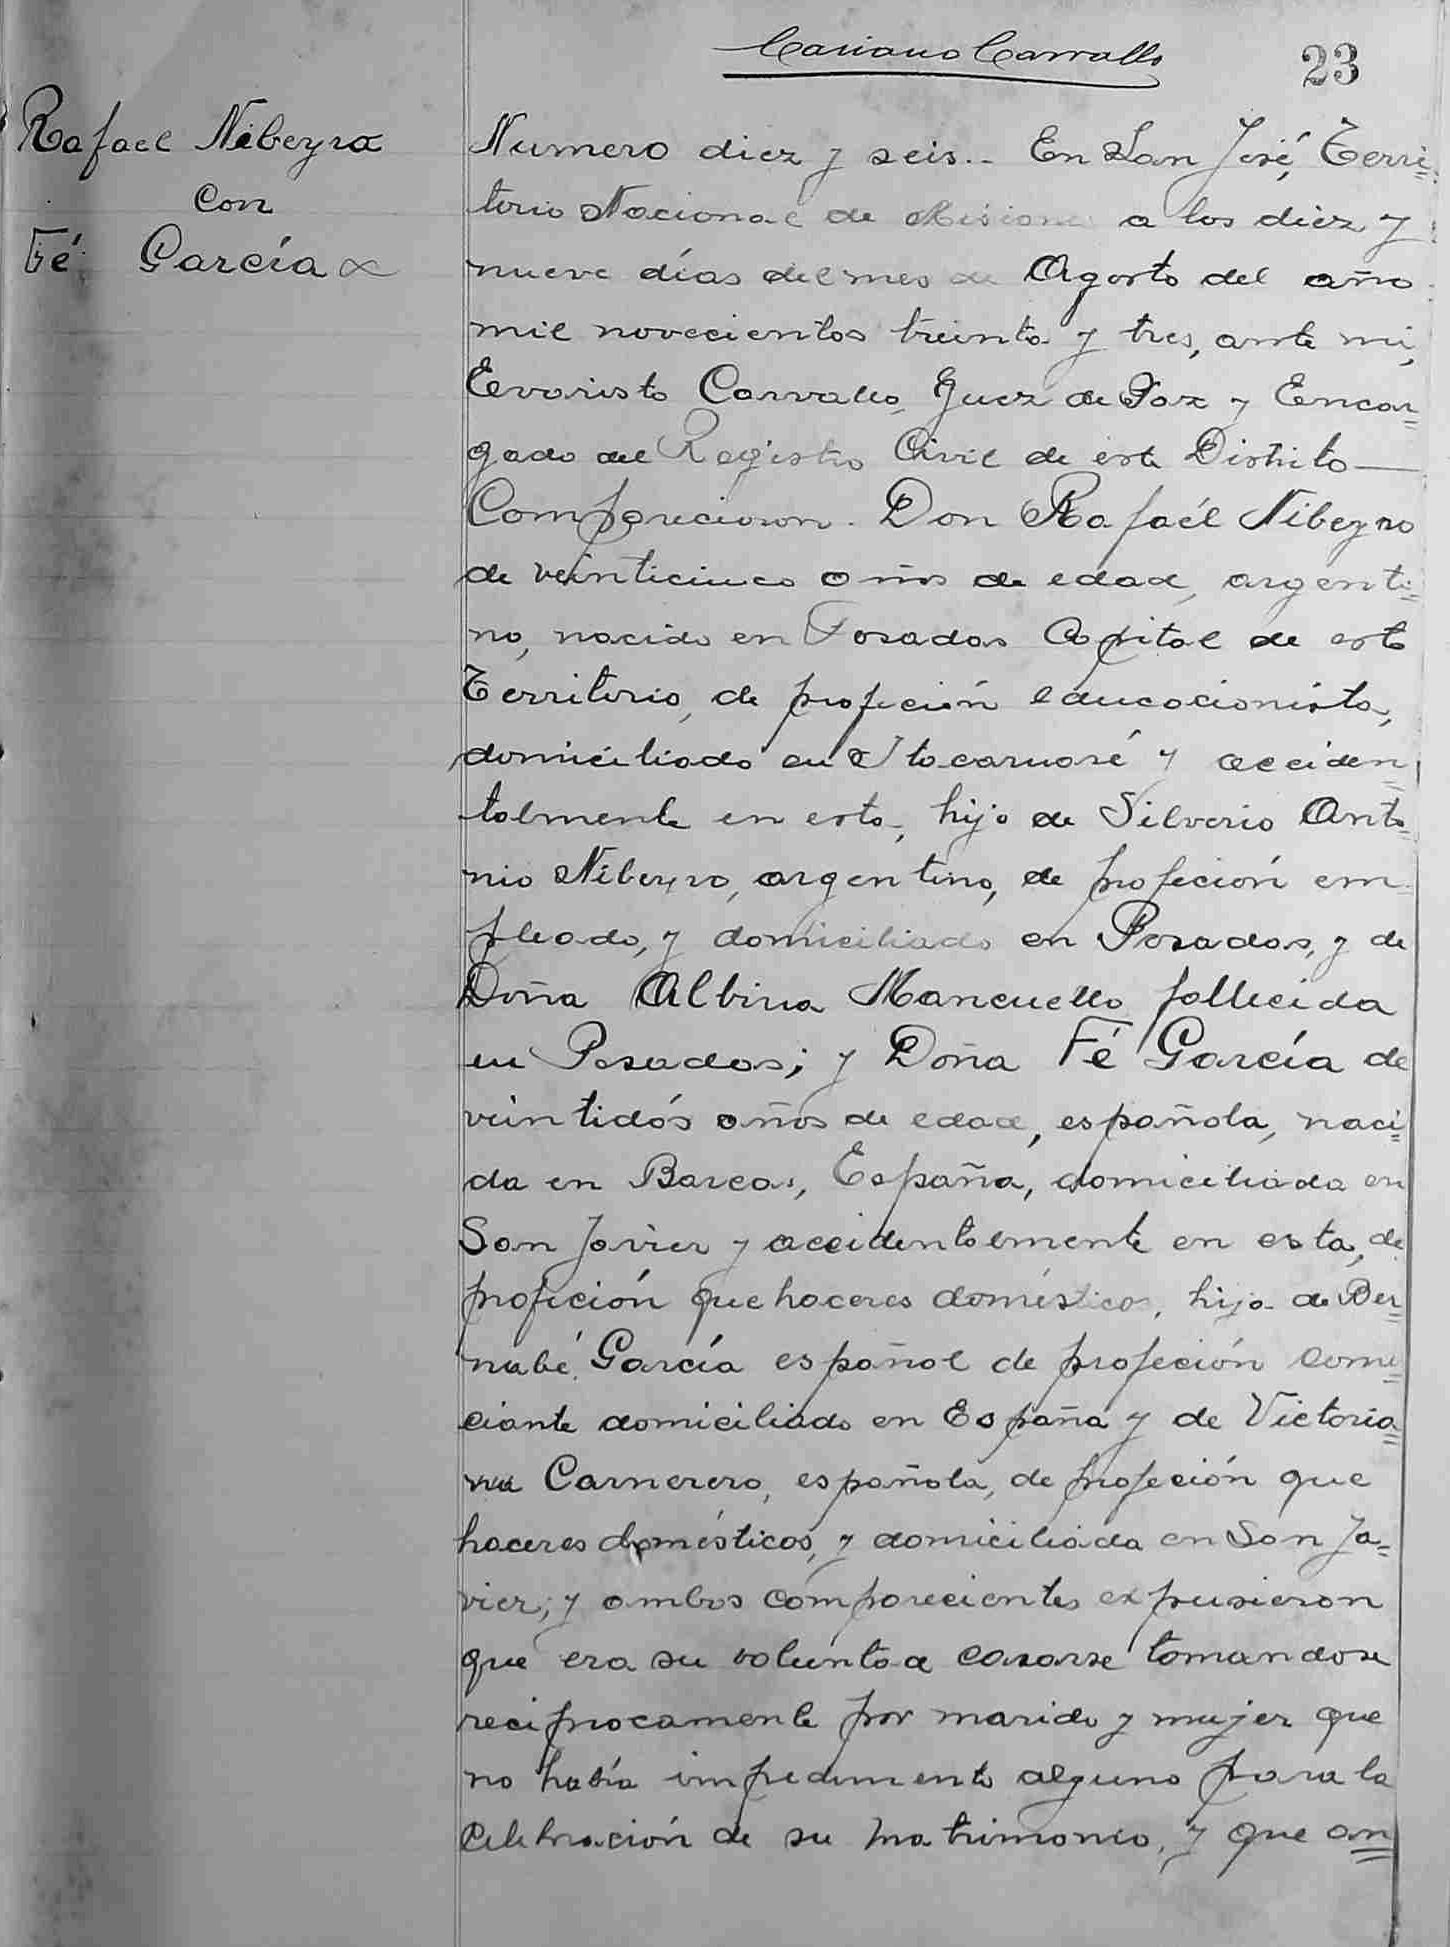 Cariano Carvallo
23
Rafael Nibeyra
con
Fé García
Numero diez y seis.- En San José, Terri=
torio Nacional de Misiones a los diez y
nueve días del mes de Agosto del año
mil novecientos treinta y tres, ante mi,
Evaristo Carvallo, Juez de Paz y Encar=
gado del Registro Civil de este Distrito—
Comparecieron. Don Rafaél Nibeyro
de veinticinco años de edad, argenti=
no, nacido en Posadas Capital de este
Territorio, de profeción educacionista,
domiciliado en Itacaruaré y acciden=
talmente en esta, hijo de Silverio Anto=
nio Nibeyro, argentino, de profeción em=
pleado, y domiciliado en Posadas, y de
Doña Albina Mancuello fallecida
en Posadas; y Doña Fé García de
veintidós años de edad, española, naci=
da en Barcas, España, domiciliada en
San Javier y accidentalmente en esta, de
profeción que haceres domésticos, hija de Ber=
nabé García español de profeción come=
ciante domiciliado en España y de Victoria=
na Carnerero, española, de profeción que
haceres domésticos, y domiciliada en San Ja=
vier; y ambos comparecientes expusieron
que era su voluntad casarse tomandose
reciprocamente por marido y mujer que
no había impedimento alguno para la
celebración de su matrimonio, y que an=